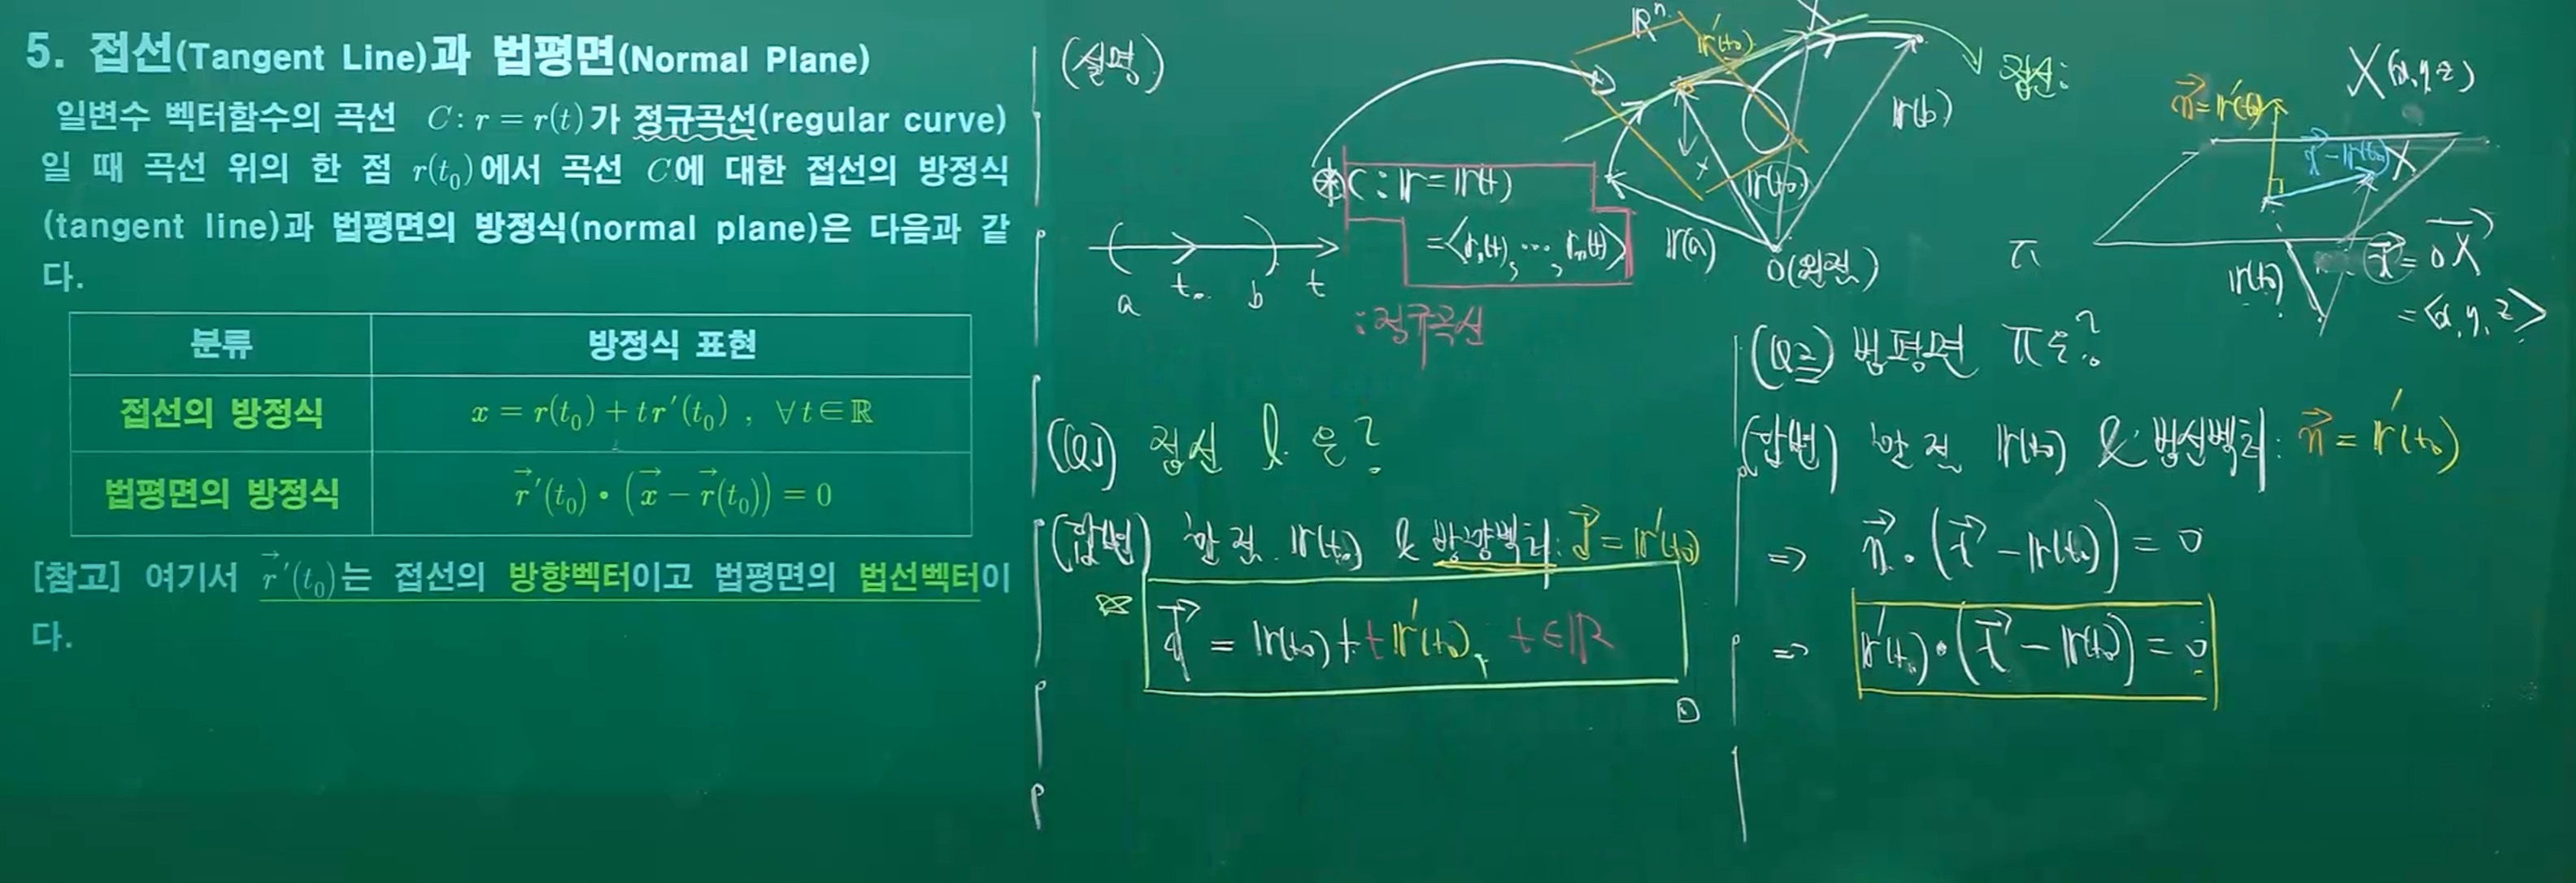 5. 접선(Tangent Line)과 법평면(Normal Plane)
일변수 벡터함수의 곡선 C : r = r(t)가 정규곡선(regular curve)
일 때 곡선 위의 한 점 r(t₀)에서 곡선 C에 대한 접선의 방정식
(tangent line)과 법평면의 방정식(normal plane)은 다음과 같
다.
분류 방정식 표현
접선의 방정식 x = r(t₀) + t r′(t₀) , ∀t∈ℝ
법평면의 방정식 r⃗′(t₀)•(x⃗ − r⃗(t₀)) = 0
[참고] 여기서 r⃗′(t₀)는 접선의 방향벡터이고 법평면의 법선벡터이
다.
(설명)
ℝⁿ
r′(t₀)
접선:
r(b)
⊛ C : r = r(t)
= <r₁(t), ⋯, rₙ(t)>
: 정규곡선
r(t₀)
r(a)
O(원점)
a t₀ b t
X(x, y, z)
n⃗ = r′(t₀)
x⃗ − r(t₀) X
π
r(t₀)
x⃗ = OX⃗
= <x, y, z>
(Q1) 접선 l 은?
(답변) 한 점 r(t₀) & 방향벡터: d⃗ = r′(t₀)
x⃗ = r(t₀) + t r′(t₀), t∈ℝ
(Q2) 법평면 π은?
(답변) 한 점 r(t₀) & 법선벡터: n⃗ = r′(t₀)
⇒ n⃗ • (x⃗ − r(t₀)) = 0
⇒ r′(t₀) • (x⃗ − r(t₀)) = 0